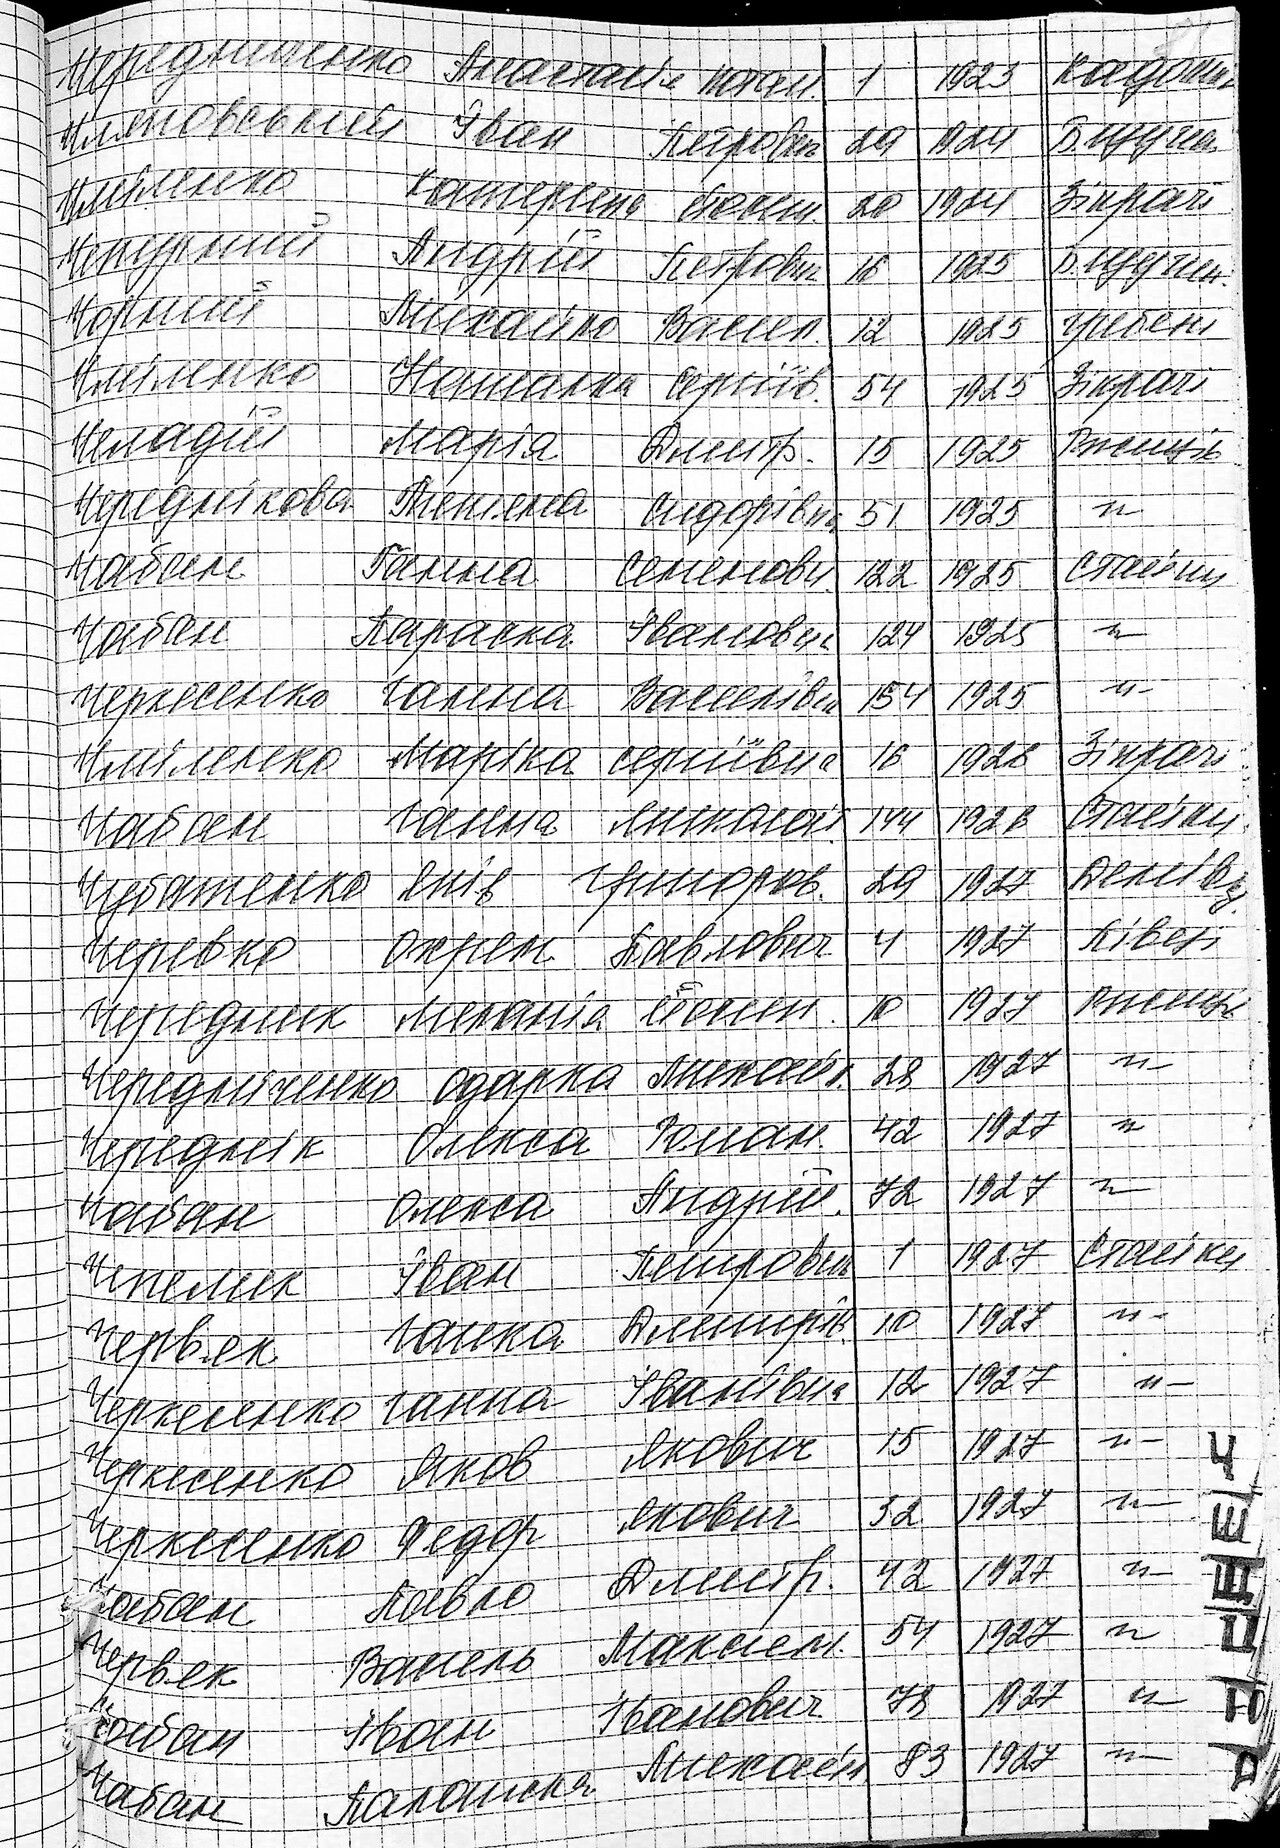 Чередниченко Анастасія Потап. 1 1923 Кадоми
Чмановський Іван Петрович 29 1924
Чміленко Катерина Йосип. 20 1924 Зікрачі
Чепурний Андрій Петрович 16 1925
Чорний Михайло Васил. 12 1925 Гребені
Чміленко Наталка Сергіїв. 54 1925 Зікрачі
Челадій Марія Дмитр. 15 1925
Череднікова Тетяна Сидорівна 51 1925 -"-
Чабан Ганна Семенови. 122 1925 Стайки
Чабан Параска Івановни 124 1925 -"-
Черкесенко Ганна Василівна 154 1925 -"-
Чміленко Маріка Сергіївна 16 1926 Зікрачі
Чабан Ганна Миколаї. 144 1926 Стайки
Чубатенко Яків Григоров. 29 1927
Черевко Охрем Павлович 4 1927
Чередник Меланія Йосип. 10 1927
Чередніченко Одарка Михайл. 28 1927 -"-
Череднік Олекса Роман. 42 1927 -"-
Чабан Олекса Андрій. 72 1927 -"-
Чепелик Іван Петрович 1 1927 Стайки
Червяк Ганка Дмитрів. 10 1927 -"-
Черкесенко Ганна Іванівна 12 1927 -"-
Черкесенко Яков Якович 15 1927 -"-
Черкесенко Федор Якович 32 1927 -"-
Чабан Павло Дмитр. 42 1927 -"-
Червяк Василь Максим. 54 1927 -"-
Чабан Іван Іванович 78 1927 -"-
Чабан Палашка Михайл 83 1927 -"-